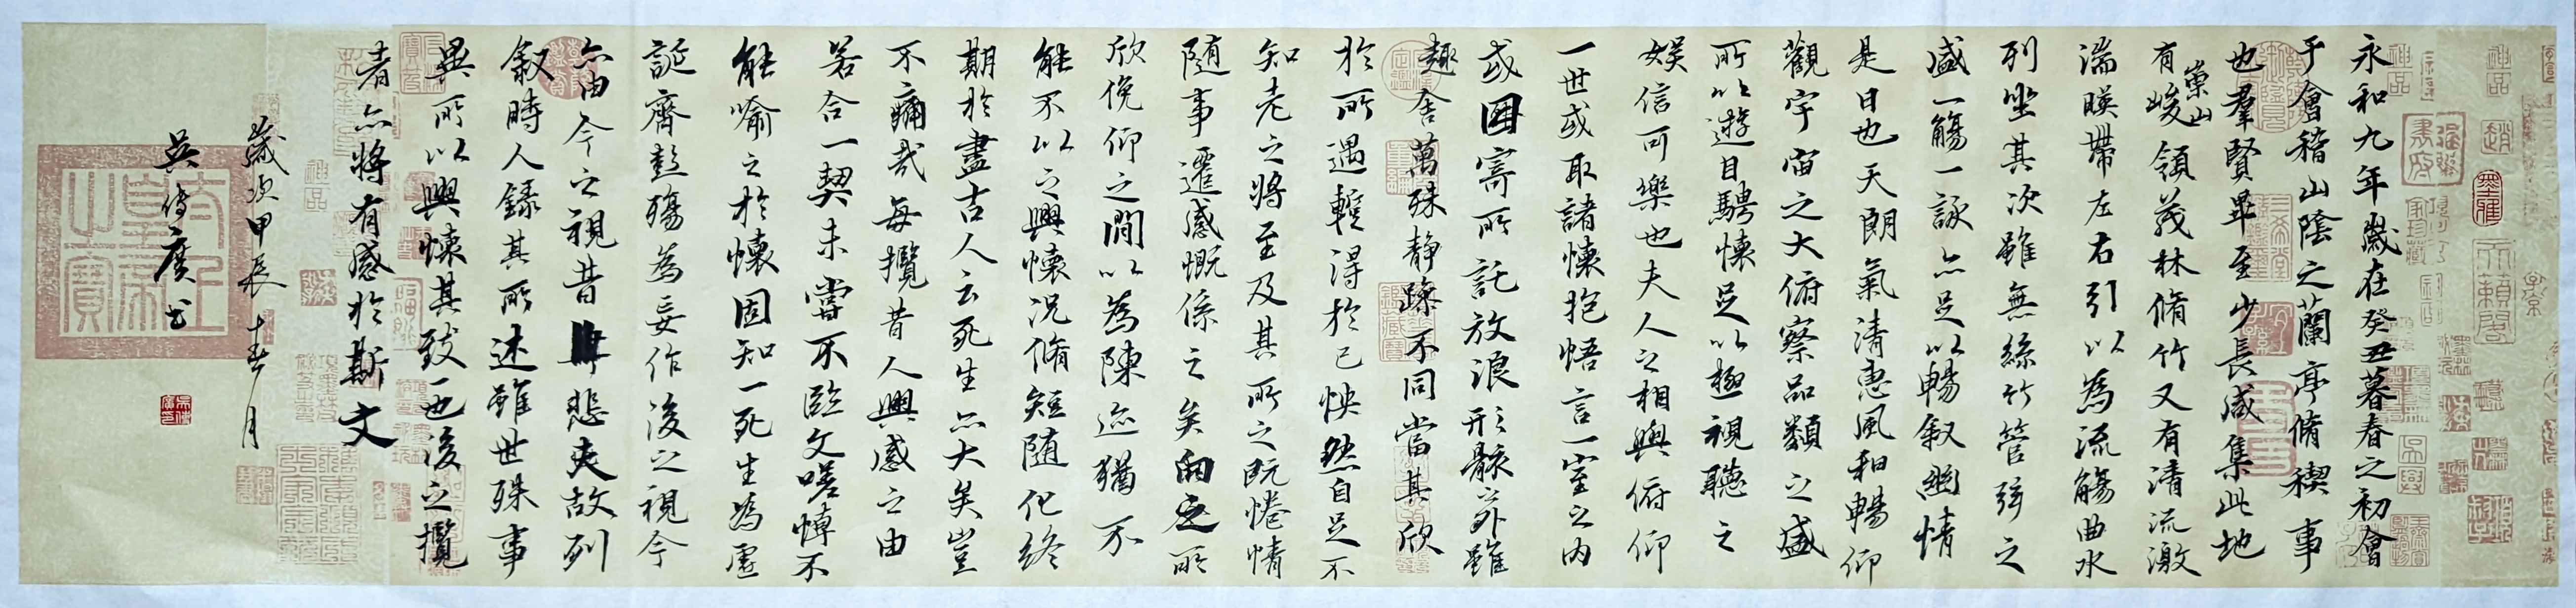 永和九年歲在癸丑暮春之初會
于會稽山陰之蘭亭脩禊事
也羣賢畢至少長咸集此地
有崇山峻領茂林脩竹又有清流激
湍暎帶左右引以為流觴曲水
列坐其次雖無絲竹管弦之
盛一觴一詠亦足以暢叙幽情
是日也天朗氣清惠風和暢仰
觀宇宙之大俯察品類之盛
所以遊目騁懷足以極視聽之
娛信可樂也夫人之相與俯仰
一世或取諸懷抱悟言一室之內
或因寄所託放浪形骸之外雖
趣舍萬殊静躁不同當其欣
於所遇蹔得於己怏然自足不
知老之將至及其所之既惓情
随事遷感慨係之矣向之所
欣俛仰之間以為陳迹猶不
能不以之興懷況脩短随化終
期於盡古人云死生亦大矣豈
不痛哉每攬昔人興感之由
若合一契未嘗不臨文嗟悼不
能喻之於懷固知一死生為虛
誕齊彭殤為妄作後之視今
亦由今之視昔悲夫故列
叙時人錄其所述雖世殊事
異所以興懷其致一也後之攬
者亦將有感於斯文
歲次甲辰春月
吳傳廣书
神品
天籟閣